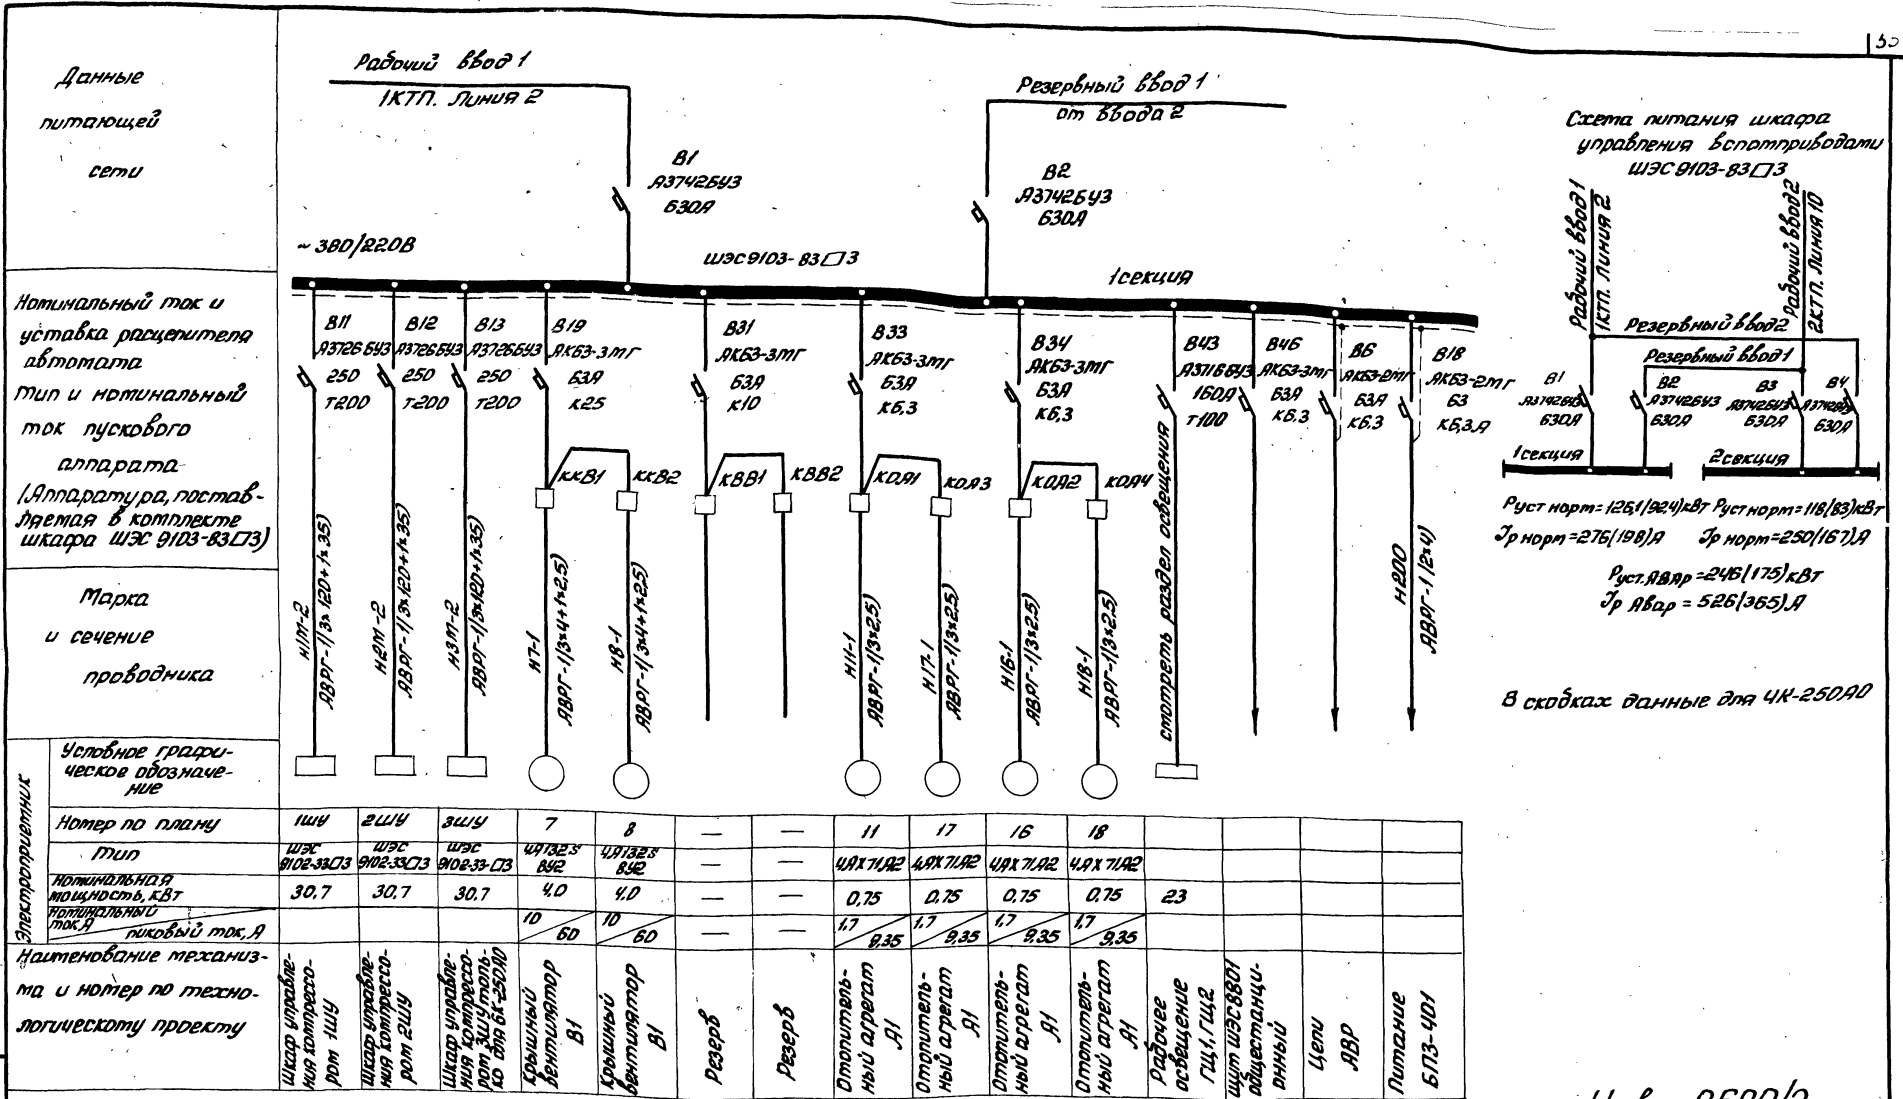 Данные
питающей
сети
Рабочий ввод 1
1КТП. Линия 2
В1
А3742БУЗ
630А
Резервный ввод 1
от ввода 2
В2
А3742БУЗ
630А
~380/220В
ШЭС 9103-83□3
1 секция
Номинальный ток и
уставка расцепителя
автомата
Тип и номинальный
ток пускового
аппарата
(Аппаратура, постав-
ляемая в комплекте
шкафа ШЭС 9103-83□3)
В11
А3726БУЗ
250
Т200
В12
А3726БУЗ
250
Т200
В13
А3726БУЗ
250
Т200
В19
АК63-3МГ
63А
К25
В31
АК63-3МГ
63А
К10
В33
АК63-3МГ
63А
К6,3
В34
АК63-3МГ
63А
К6,3
В43
А3716БУЗ
160А
Т100
В46
АК63-3МГ
63А
К6.3
В6
АК63-2МГ
63А
К6.3
В18
АК63-2МГ
63
К6,3А
ККВ1
ККВ2
КВВ1
КВВ2
КОА1
КОА3
КОА2
КОА4
Марка
и сечение
проводника
Н1М-2
АВРГ-1(3×120+1×35)
Н2М-2
АВРГ-1(3×120+1×35)
Н3М-2
АВРГ-1(3×120+1×35)
Н7-1
АВРГ-1(3×4+1×2,5)
Н8-1
АВРГ-1(3×4+1×2,5)
Н11-1
АВРГ-1(3×2,5)
Н17-1
АВРГ-1(3×2,5)
Н16-1
АВРГ-1(3×2,5)
Н18-1
АВРГ-1(3×2,5)
смотреть раздел освещения
Н200
АВРГ-1(2×4)
Электроприемник
Условное графи-
ческое обозначе-
ние
Номер по плану
1ШУ 2ШУ 3ШУ 7 8 — — 11 17 16 18
Тип
ШЭС 9102-33□3
ШЭС 9102-33□3
ШЭС 9102-33-□3
4А132S8У2
4А132S8У2
— —
4АХ71А2 4АХ71А2 4АХ71А2 4АХ71А2
Номинальная
мощность, кВт
30,7 30,7 30.7 4,0 4.0 — — 0,75 0,75 0,75 0,75 23
Номинальный
ток, А
пиковый ток, А
10/60 10/60 — — 1,7/9,35 1,7/9,35 1,7/9,35 1,7/9,35
Наименование механиз-
ма и номер по техно-
логическому проекту
Шкаф управле-
ния компрессо-
ром 1ШУ
Шкаф управле-
ния компрессо-
ром 2ШУ
Шкаф управле-
ния компрессо-
ром 3ШУ толь-
ко для 6К-250АО
Крышный
вентилятор
В1
Крышный
вентилятор
В1
Резерв
Резерв
Отопитель-
ный агрегат
А1
Отопитель-
ный агрегат
А1
Отопитель-
ный агрегат
А1
Отопитель-
ный агрегат
А1
Рабочее
освещение
ГЩ1, ГЩ2
Щит ШЭС8801
общестанци-
онный
Цепи
АВР
Питание
БПЗ-401
Схема питания шкафа
управления вспомприводами
ШЭС 9103-83□3
Рабочий ввод 1
1КТП. Линия 2
Рабочий ввод 2
2КТП. Линия 10
Резервный ввод2
Резервный ввод1
В1
А3742БУЗ
630А
В2
А3742БУЗ
630А
В3
А3742БУЗ
630А
В4
А3742БУЗ
630А
1 секция
2 секция
Руст норм=126,1(92,4)кВт Руст норм=118(83)кВт
Iр норм=276(198)А Iр норм=250(167)А
Руст.АВАр=246(175)кВт
Iр Авар=526(365)А
В скобках данные для 4К-250АО